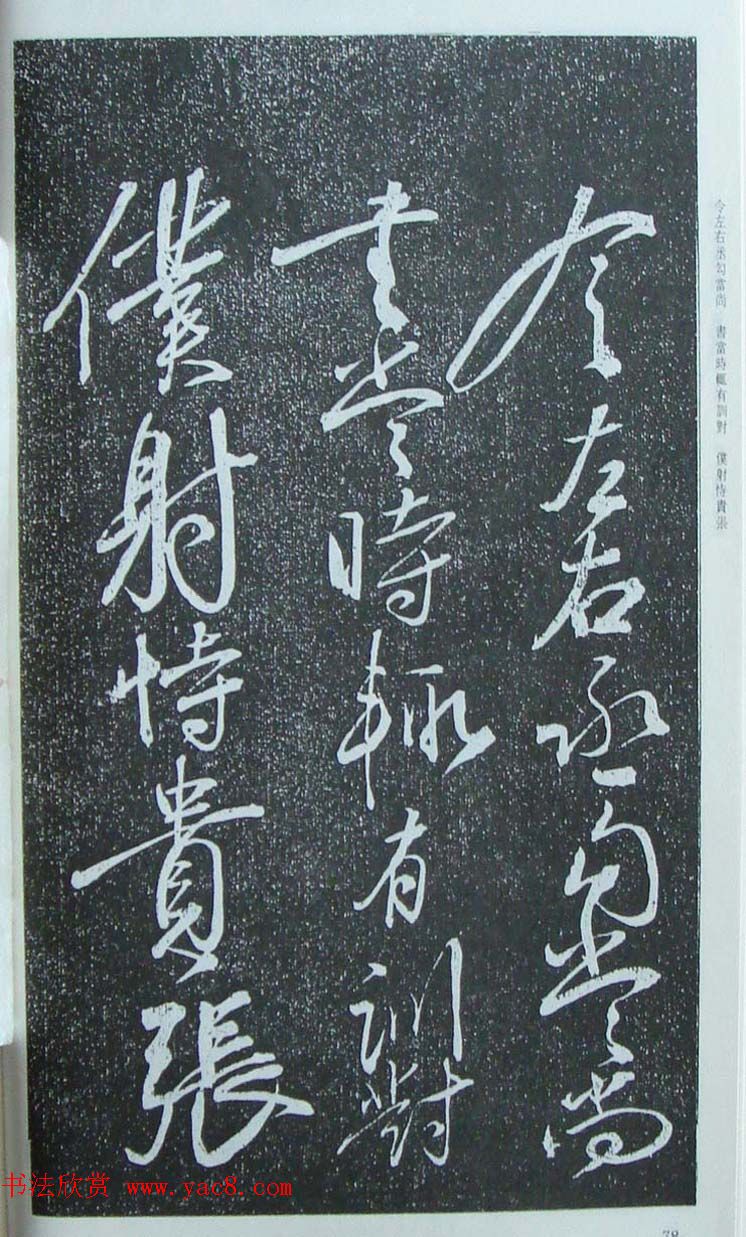 令左右丞勾當尚
書當時輒有訓對
僕射恃貴張
令左右丞勾當尚 書當時輒有訓對 僕射恃貴張
书法欣赏 www.yac8.com
78